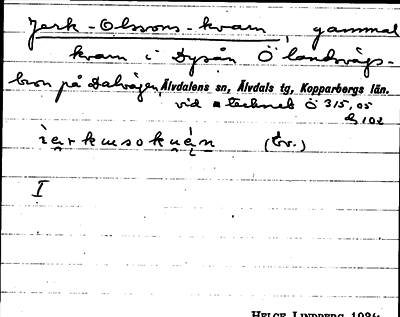 Jerk-Olssons-kvarn, gammal
kvarn i Dysån Ö landsvägs-
bron på Dalvägen, Älvdalens sn, Älvdals tg, Kopparbergs län.
vid tecknet Ö 315,05
102
(Ev.)
I
HELGE LINDBERG 1934